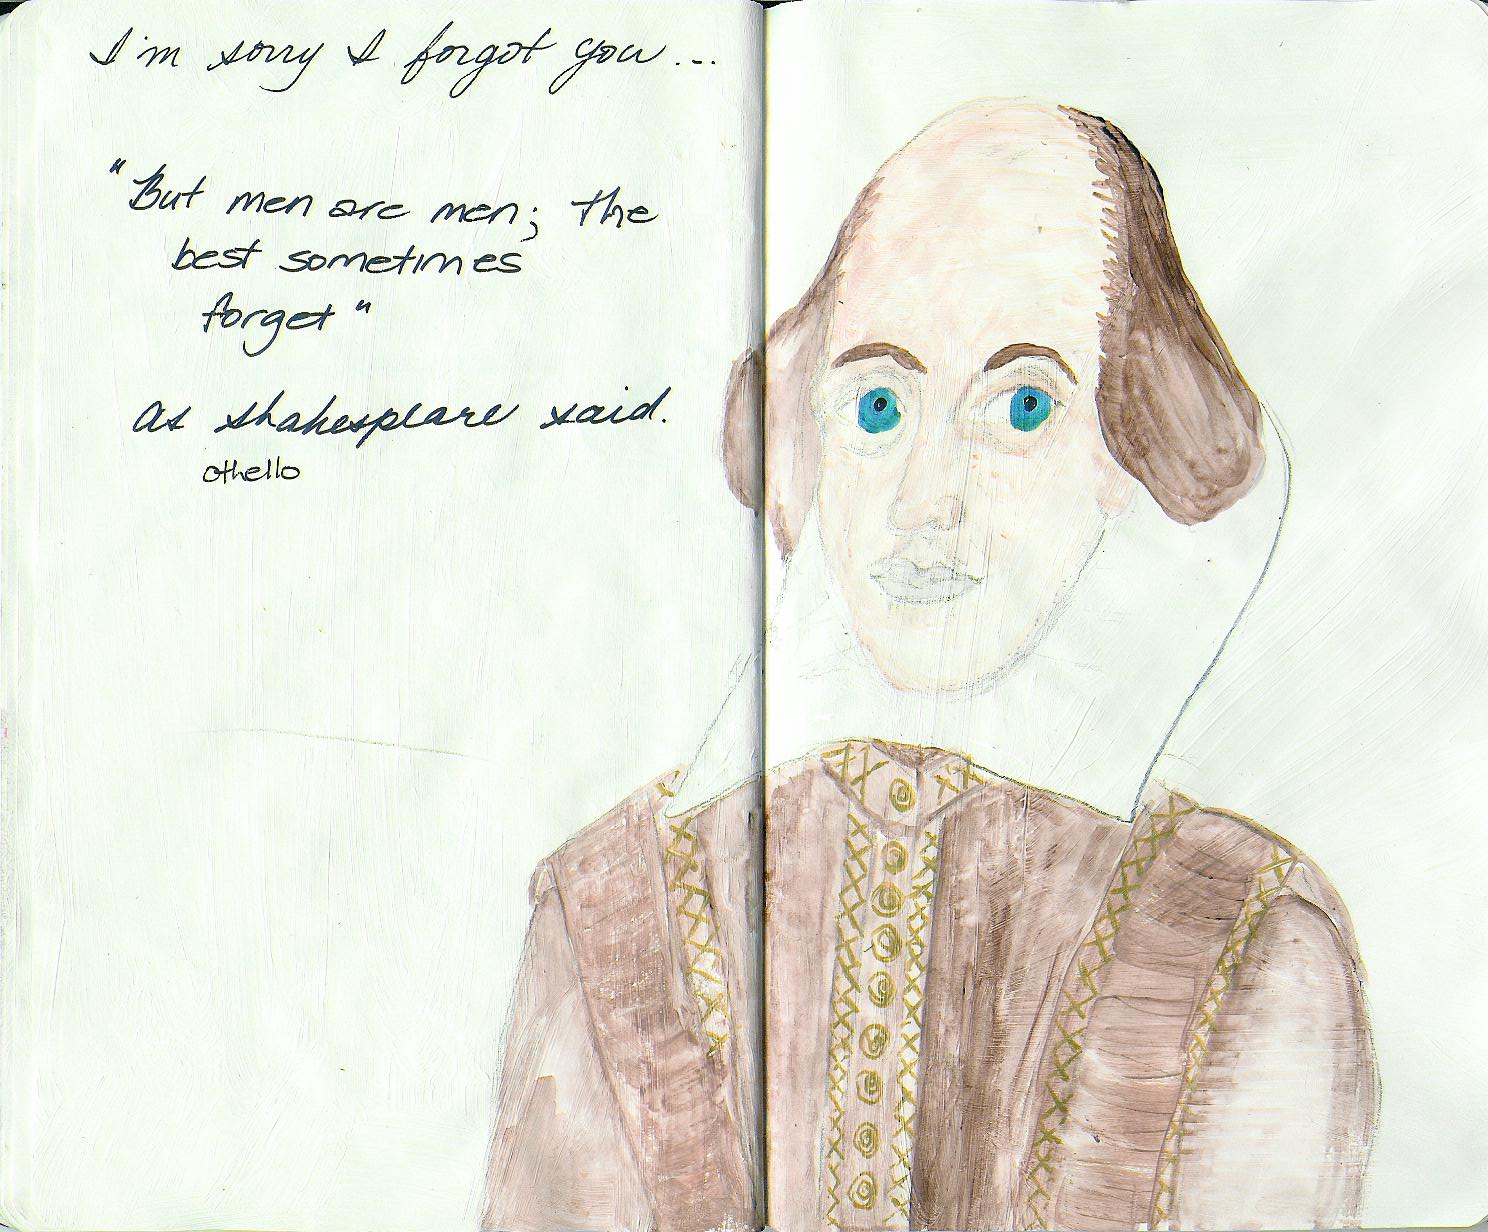 I'm sorry I forgot you...
"But men are men; the
best sometimes
forget"
as shakespeare said.
othello